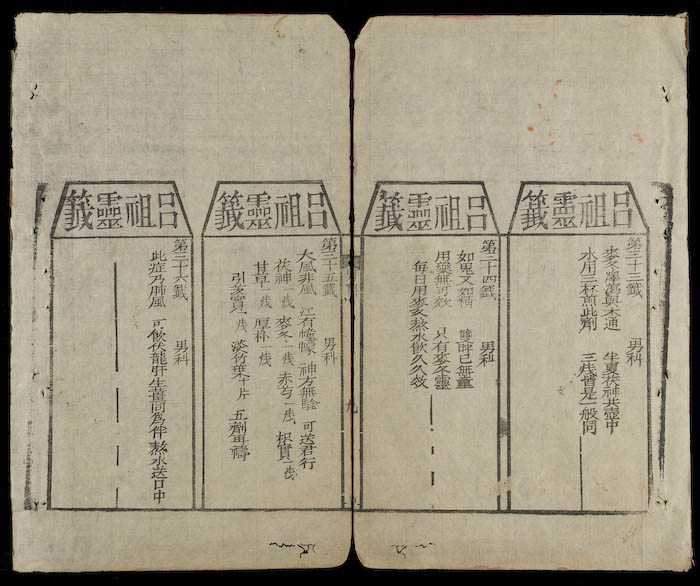 呂祖靈籤
第三十三籤 男科
麥冬澤瀉與木通 半夏茯神共壺中
水用三杯煎此劑 三戋皆是一般同
呂祖靈籤
第三十四籤 男科
如鬼又如 雙眸已無
用藥無可效 只有麥冬靈
每日用麥冬熬水飲久久效
九
呂祖靈籤
第三十五籤 男科
大風非風 江有 神方無驗 可送君行
茯神一戋 麥冬一戋 赤芍一戋 枳實一戋
甘草一戋 厚朴一戋
引 實一戋 淡竹葉十片 五劑再禱
呂祖靈籤
第三十六籤 男科
此症乃肺風 可飲伏龍肝生薑同為伴熬水送口中